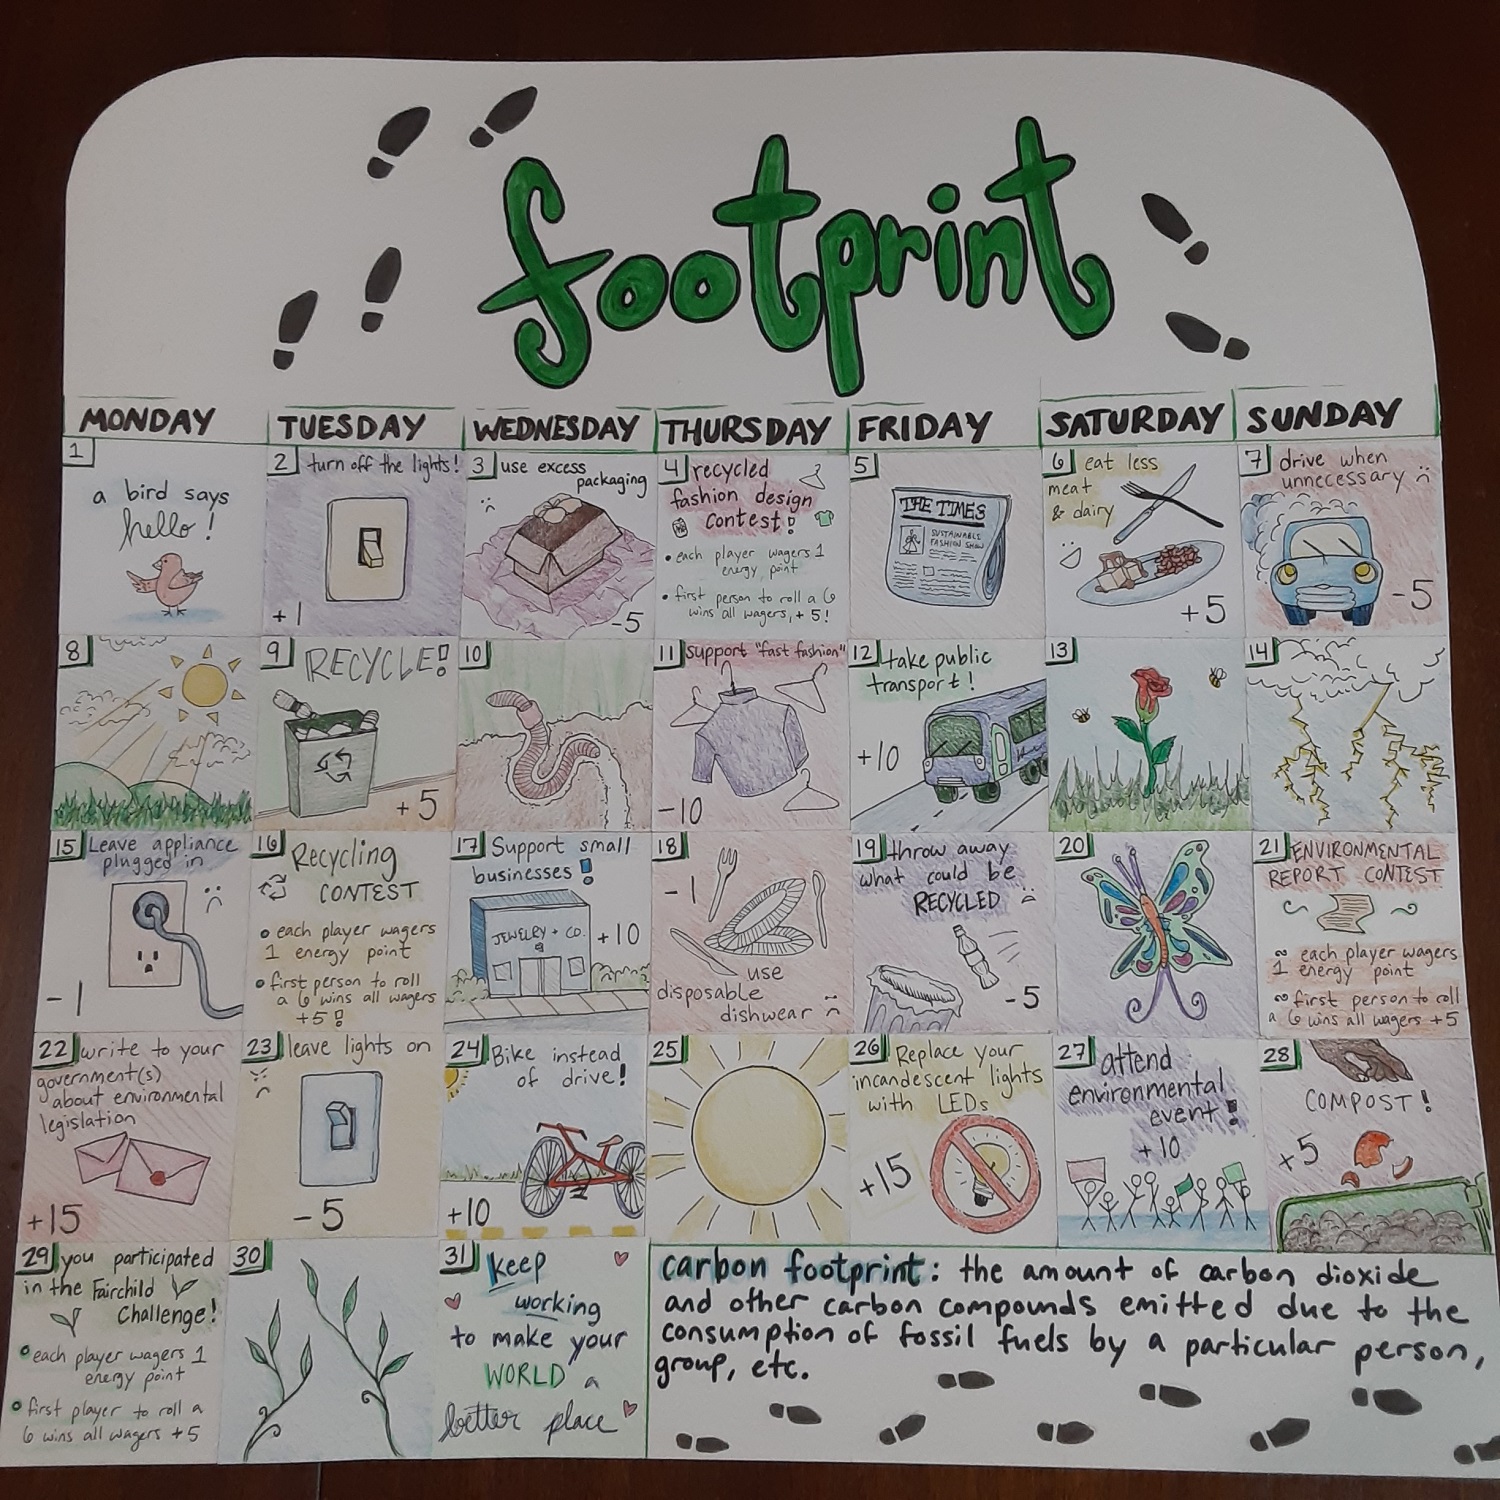 footprint
MONDAY TUESDAY WEDNESDAY THURSDAY FRIDAY SATURDAY SUNDAY
1
a bird says
hello!
2 turn off the lights!
+1
3 use excess
packaging
-5
4 recycled
fashion design
contest!
• each player wagers 1
energy point
• first person to roll a 6
wins all wagers, +5!
5
THE TIMES
SUSTAINABLE
FASHION SHOW
6 eat less
meat
& dairy
+5
7 drive when
unnecessary
-5
8
9 RECYCLE!
+5
10
11 support "fast fashion"
-10
12 take public
transport!
+10
13
14
15 Leave appliance
plugged in
-1
16 Recycling
CONTEST
• each player wagers
1 energy point
• first person to roll
a 6 wins all wagers
+5!
17 Support small
businesses!
JEWELRY + CO.
+10
18
-1
use
disposable
dishwear
19 throw away
what could be
RECYCLED
-5
20
21 ENVIRONMENTAL
REPORT CONTEST
∞ each player wagers
1 energy point
∞ first person to roll
a 6 wins all wagers +5
22 write to your
government(s)
about environmental
legislation
+15
23 leave lights on
-5
24 Bike instead
of drive!
+10
25
26 Replace your
incandescent lights
with LEDs
+15
27 attend
environmental
event!
+10
28
COMPOST!
+5
29 you participated
in the Fairchild
Challenge!
• each player wagers 1
energy point
• first player to roll a
6 wins all wagers +5
30
31 keep
working
to make your
WORLD a
better place
carbon footprint: the amount of carbon dioxide
and other carbon compounds emitted due to the
consumption of fossil fuels by a particular person,
group, etc.